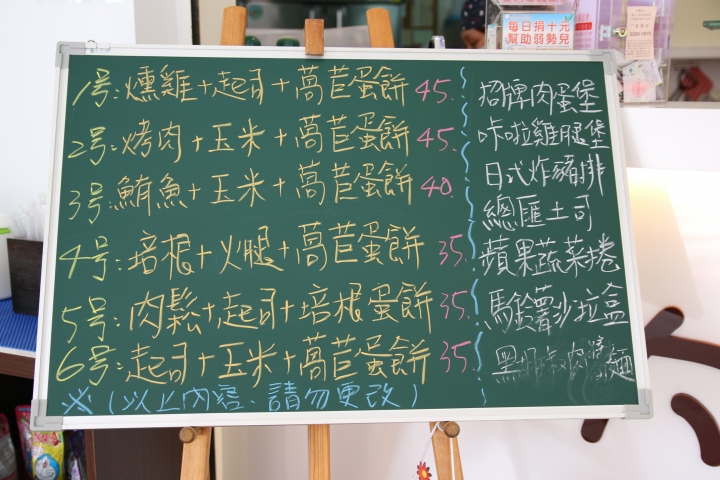 每日捐十元
幫助弱勢兒
1号:燻雞+起司+萵苣蛋餅 45.
2号:烤肉+玉米+萵苣蛋餅 45.
3号:鮪魚+玉米+萵苣蛋餅 40.
4号:培根+火腿+萵苣蛋餅 35.
5号:肉鬆+起司+培根蛋餅 35.
6号:起司+玉米+萵苣蛋餅 35.
※(以上內容、請勿更改)
招牌肉蛋堡
咔啦雞腿堡
日式炸豬排
總匯土司
蘋果蔬菜捲
馬鈴薯沙拉盒
黑胡椒肉醬麵